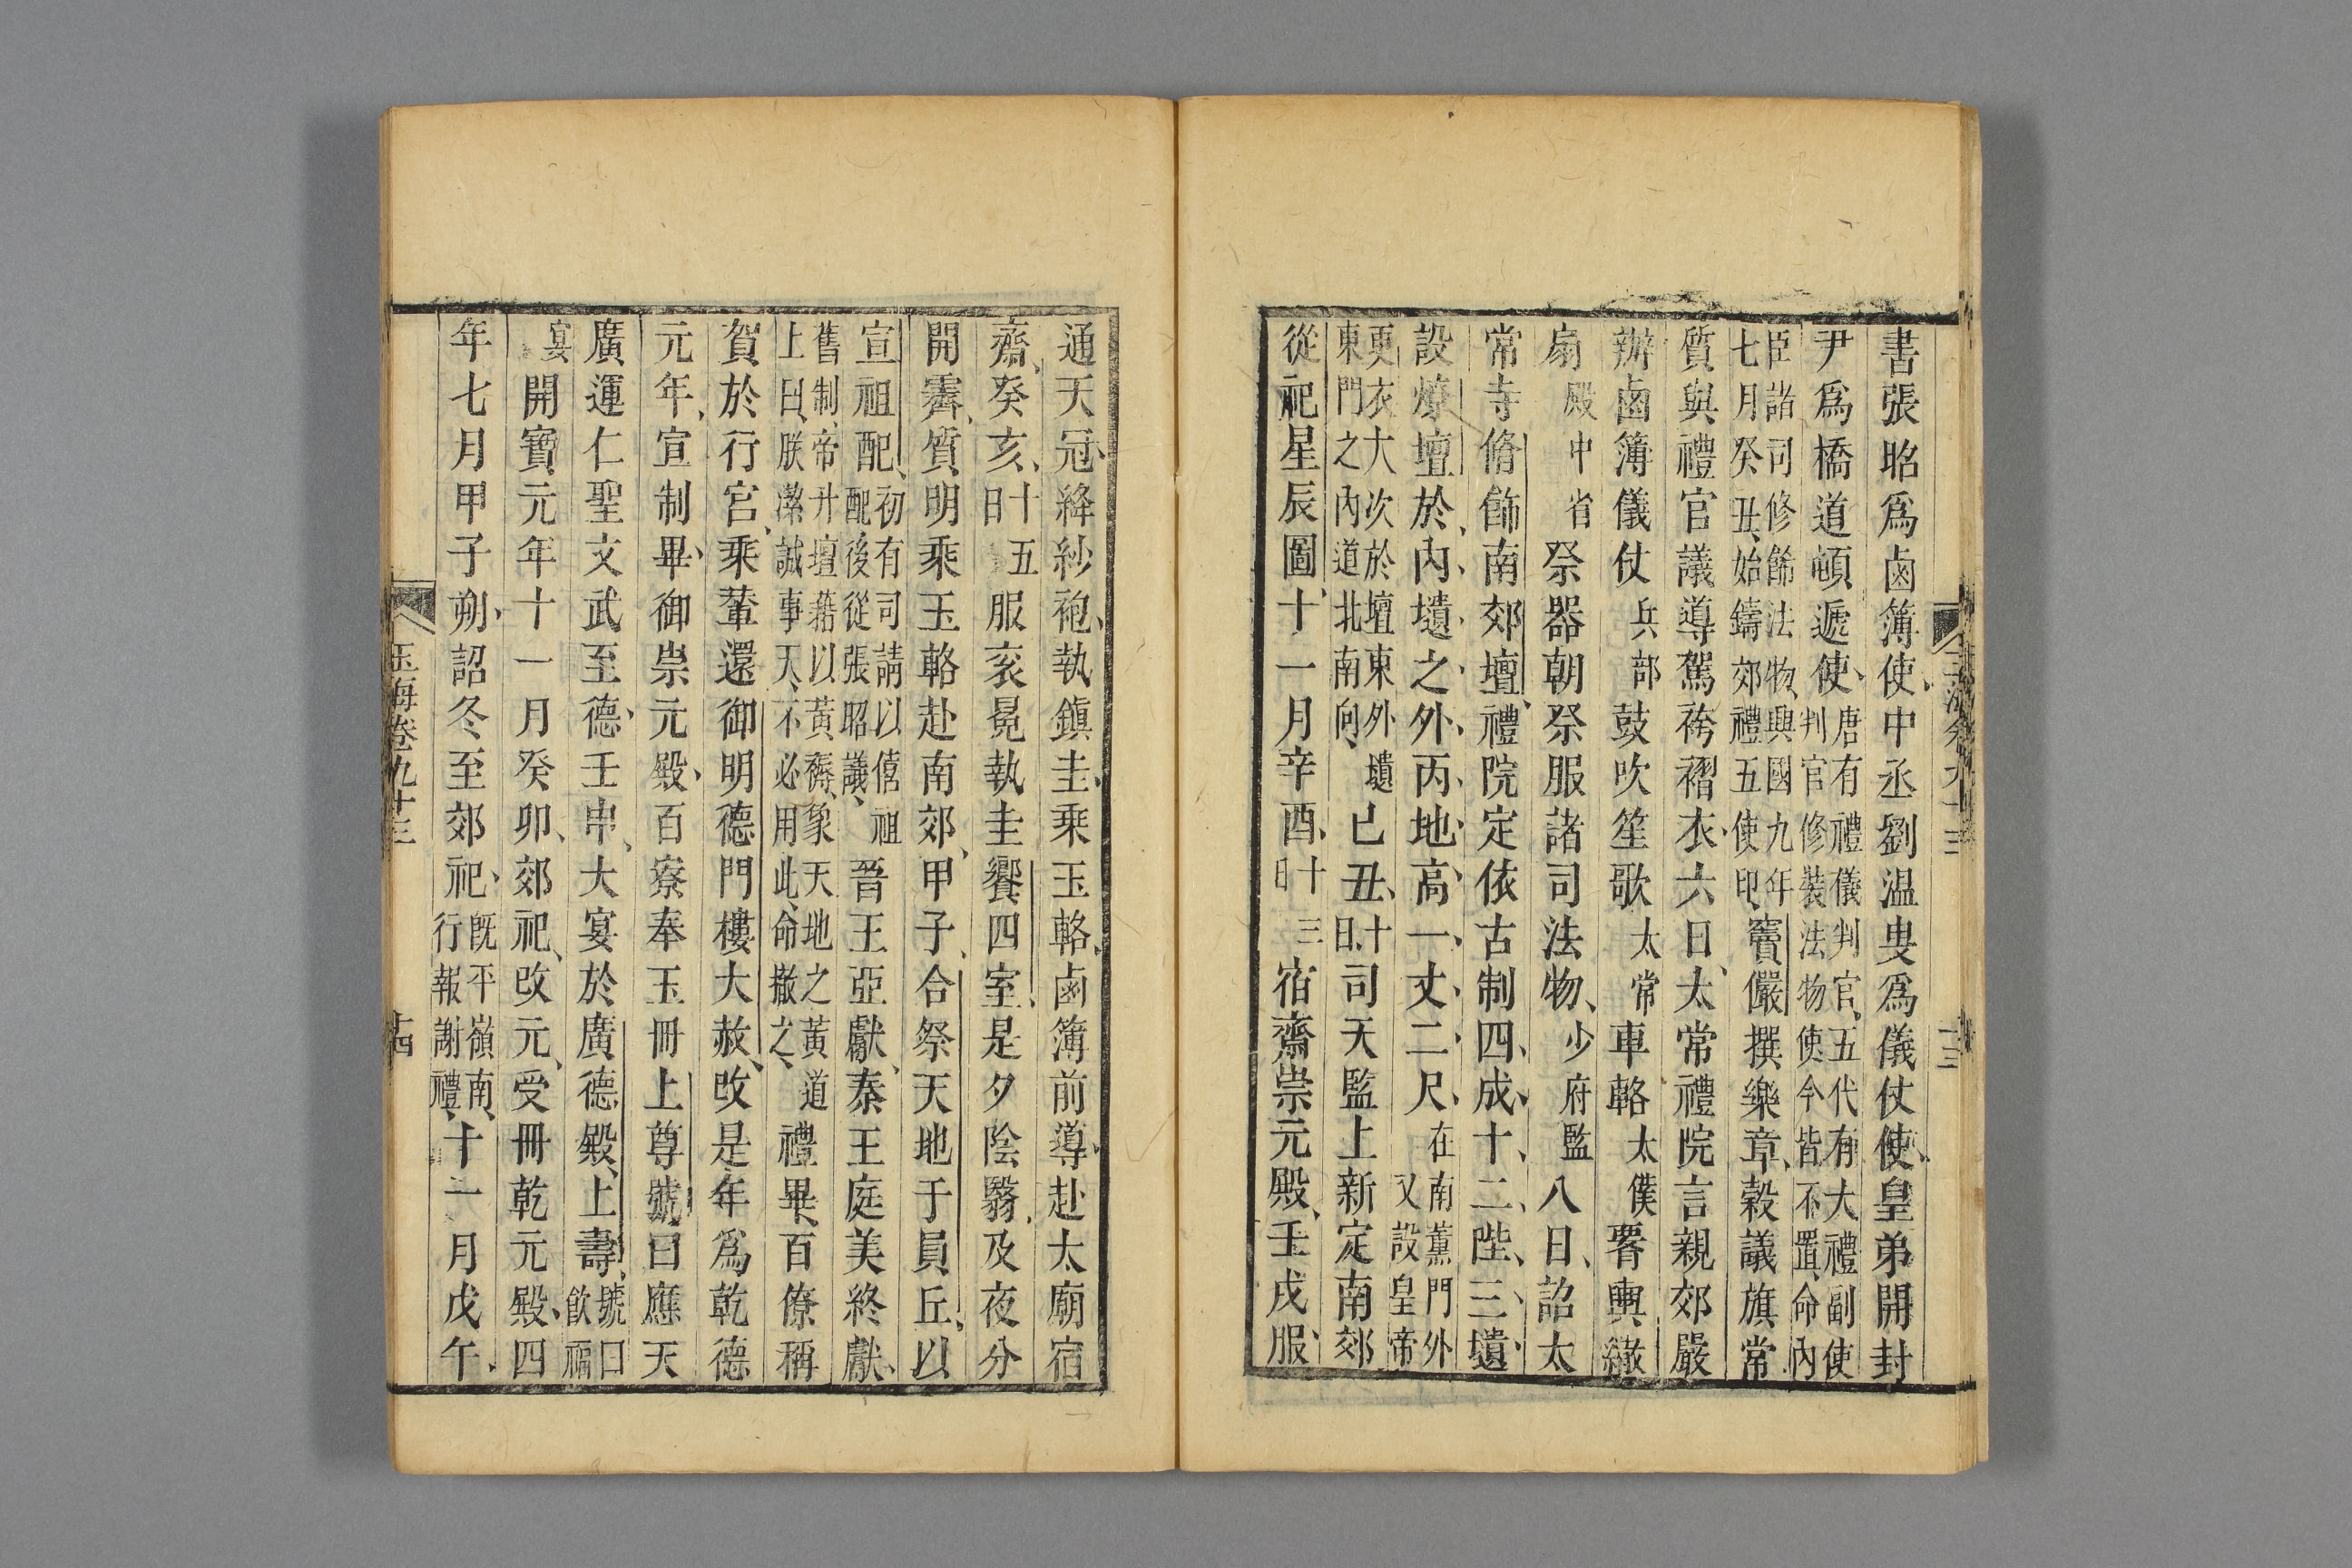 書張昭爲鹵簿使中丞劉温叟爲儀仗使皇弟開封
尹爲橋道頓遞使唐有禮儀判官五代有大禮副使判官修裝法物使今皆不置命內
臣諸司修餙法物興國九年七月癸丑始鑄郊禮五使印竇儼撰樂章穀議旗常
質與禮官議導駕袴褶衣六日太常禮院言親郊嚴
辦鹵簿儀仗兵部鼓吹笙歌太常車輅太僕看輿繖
扇殿中省祭器朝祭服諸司法物少府監八日詔太
常寺脩飾南郊壇禮院定依古制四成十二陛三壝
設燎壇於內壝之外丙地高一丈二尺在南薰門外又設皇帝
更衣大次於壇東外壝東門之內道北南向已丑十日司天監上新定南郊
從祀星辰圖十一月辛酉十三日宿齋崇元殿壬戌服
通天冠絳紗袍執鎭圭乗玉輅鹵簿前導赴太廟宿
齋癸亥十五日服衮冕執圭饗四室是夕陰翳及夜分
開霽質明乘玉輅赴南郊甲子合祭天地于員丘以
宣祖配初有司請以僖祖配後從張昭議晉王亞獻泰王庭美終獻
舊制帝升壇藉以黃褥象天地之黃道上曰朕潔誠事天不必用此命撤之禮畢百僚稱
賀於行宮乘輦還御明德門樓大赦改是年爲乾德
元年宣制畢御崇元殿百寮奉玉冊上尊號曰應天
廣運仁聖文武至德壬申大宴於廣德殿上壽號曰飲福
宴開寶元年十一月癸卯郊祀改元受冊乾元殿四
年七月甲子朔詔冬至郊祀既平嶺南行報謝禮十一月戊午
玉海卷九十三
十四